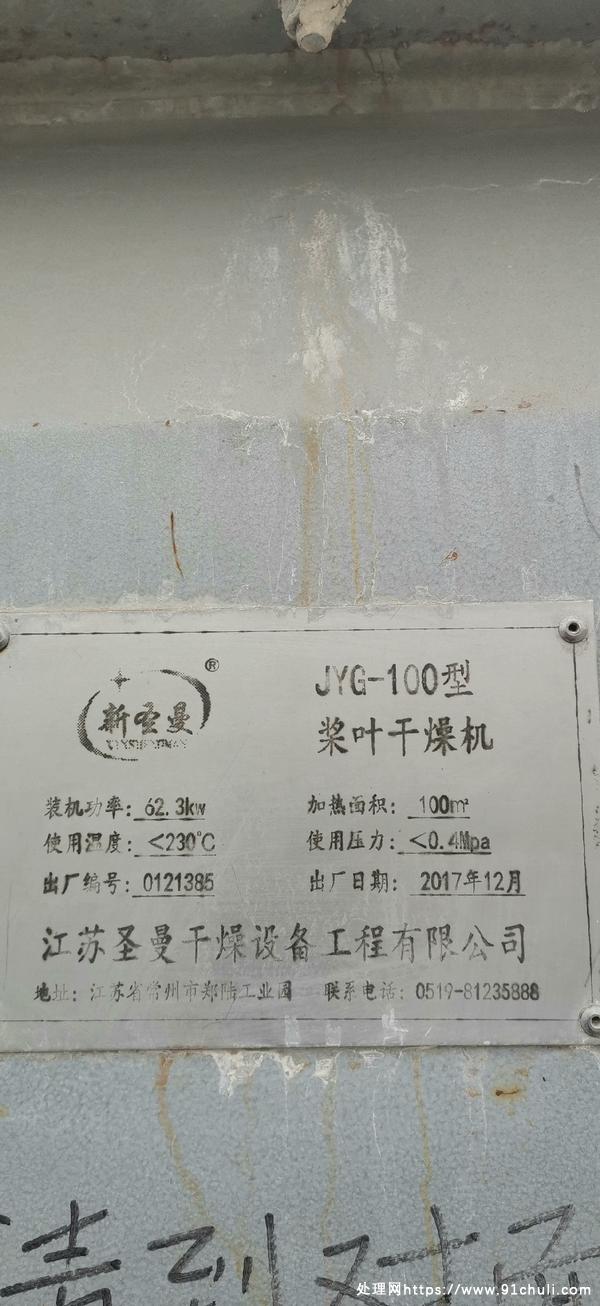 新圣曼®
XINSHENGMAN
JYG-100型
桨叶干燥机
装机功率: 62.3kw 加热面积: 100㎡
使用温度: <230℃ 使用压力: <0.4Mpa
出厂编号: 0121385 出厂日期: 2017年12月
江苏圣曼干燥设备工程有限公司
地址: 江苏省常州市郑陆工业园 联系电话: 0519-81235888
请到对面
处理网https://www.91chuli.com